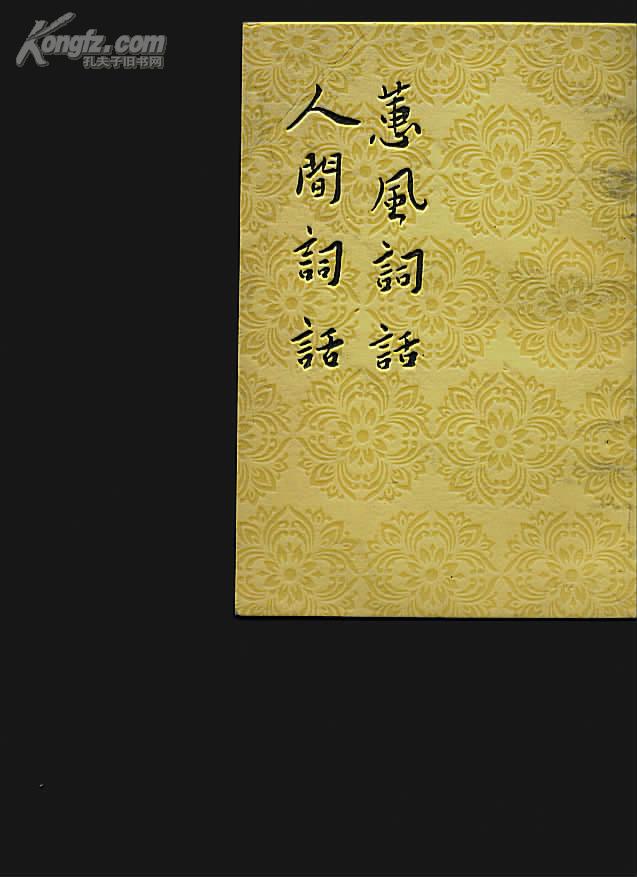 Kongfz.com
孔夫子旧书网
蕙風詞話
人間詞話